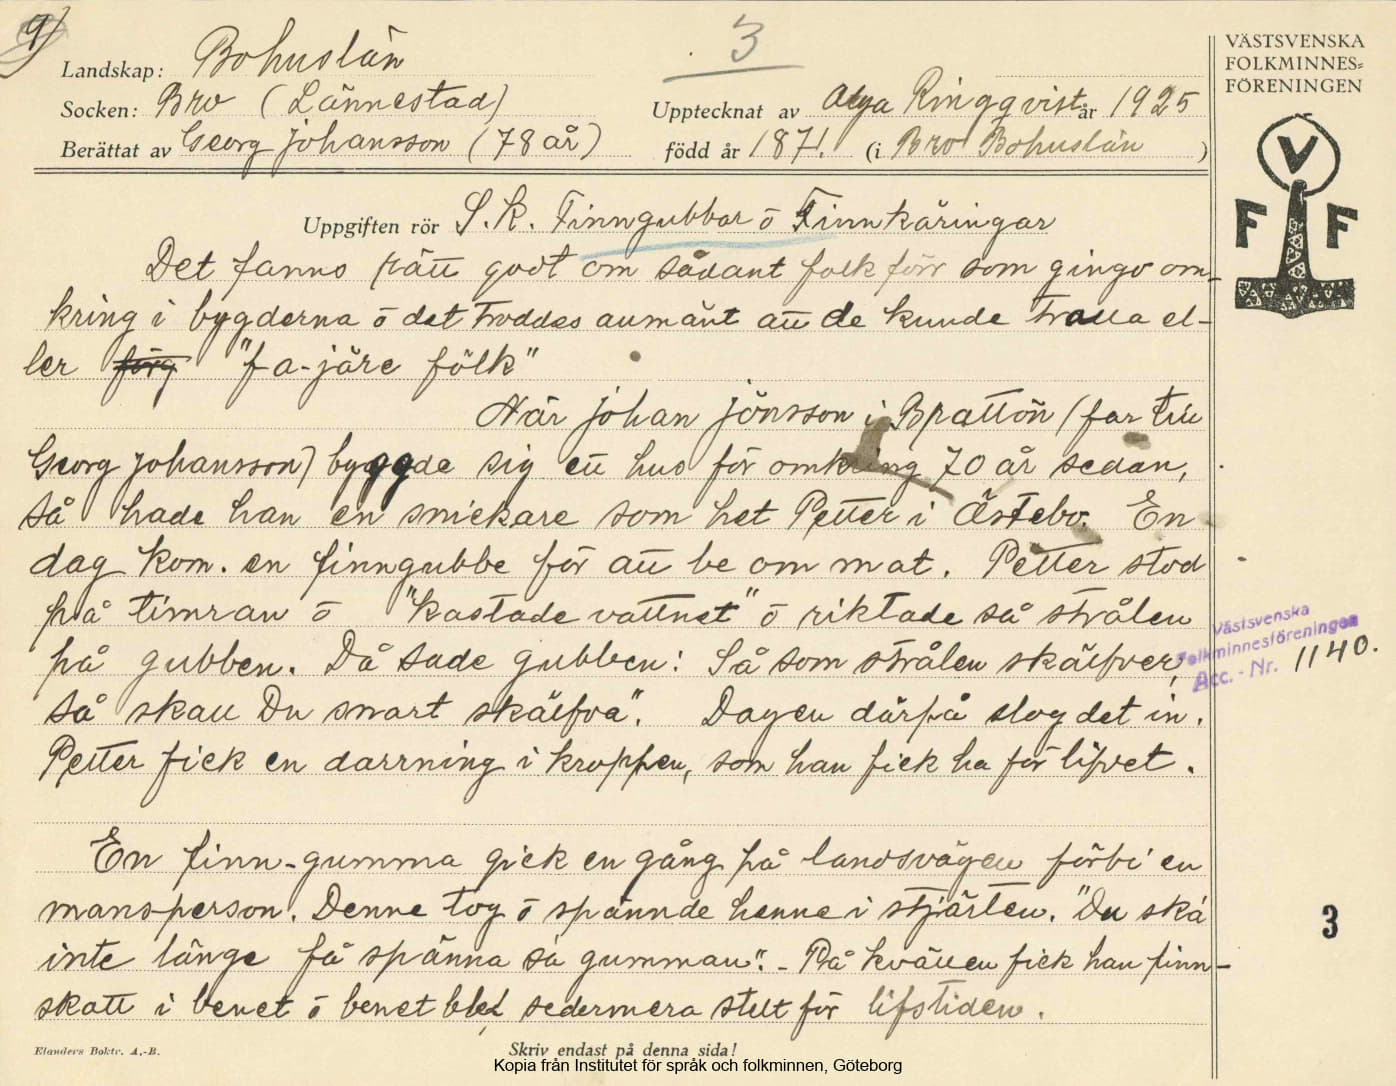 9)
3
Landskap: Bohuslän
Socken: Bro (Lännestad)
Upptecknat av Olga Ringqvist år 1925
Berättat av Georg Johansson (78 år)
född år 1871. (i Bro Bohuslän )
VÄSTSVENSKA
FOLKMINNES=
FÖRENINGEN
V
F F
Uppgiften rör S.k. Finngubbar ö Finnkäringar
Det fanns rätt godt om sådant folk förr som gingo om-
kring i bygderna ö det troddes aumänt att de kunde trolla el-
ler förg "f-a-järe fölk"
När Johan Jönsson i Brattön (far till
Georg Johansson) byggde sig ett hus för omkring 70 år sedan,
så hade han en snickare som het Petter i Östebo. En
dag kom. en finngubbe för att be om mat. Petter stod
på timran ö "kastade vattnet" ö riktade så strålen
på gubben. Då sade gubben: Så som strålen skälfver,
så skall Du snart skälfva". Dagen därpå slog det in.
Petter fick en darrning i kroppen, som han fick ha för lifvet.
Västsvenska
Folkminnesföreningen
Acc. - Nr. 1140.
En finn-gumma gick en gång på landsvägen förbi en
mansperson. Denne tog ö spännde henne i stjärten. "Du ska
inte länge få spänna sa gumman". - På kvällen fick han finn-
skott i benet ö benet blef sedermera stelt för lifstiden.
3
Elanders Boktr. A.-B.
Skriv endast på denna sida!
Kopia från Institutet för språk och folkminnen, Göteborg